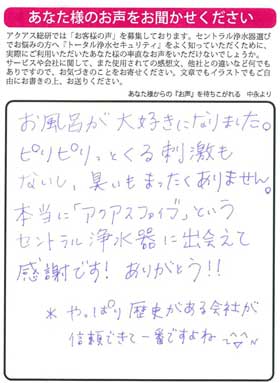 あなた様のお声をお聞かせください
アクアス総研では「お客様の声」を募集しております。セントラル浄水器選び
でお悩みの方へ『トータル浄水セキュリティ』をよく知っていただくために、
実際にご利用いただいたあなた様の率直なお声をいただけないでしょうか。
サービスや会社に関して、また使用されての感想文、他社との違いなど何でも
ありですので、お気づきのことをお寄せください。文章でもイラストでもご自
由にお書きの上、お送りください。
あなた様からの『お声』を待ちこがれる 中永より
お風呂が大好きになりました。
ピリピリっとくる刺激も
ないし、臭いもまったくありません。
本当に「アクアスファイブ」という
セントラル浄水器に出会えて
感謝です！ありがとう！！
＊やっぱり歴史がある会社が
信頼できて一番ですよね